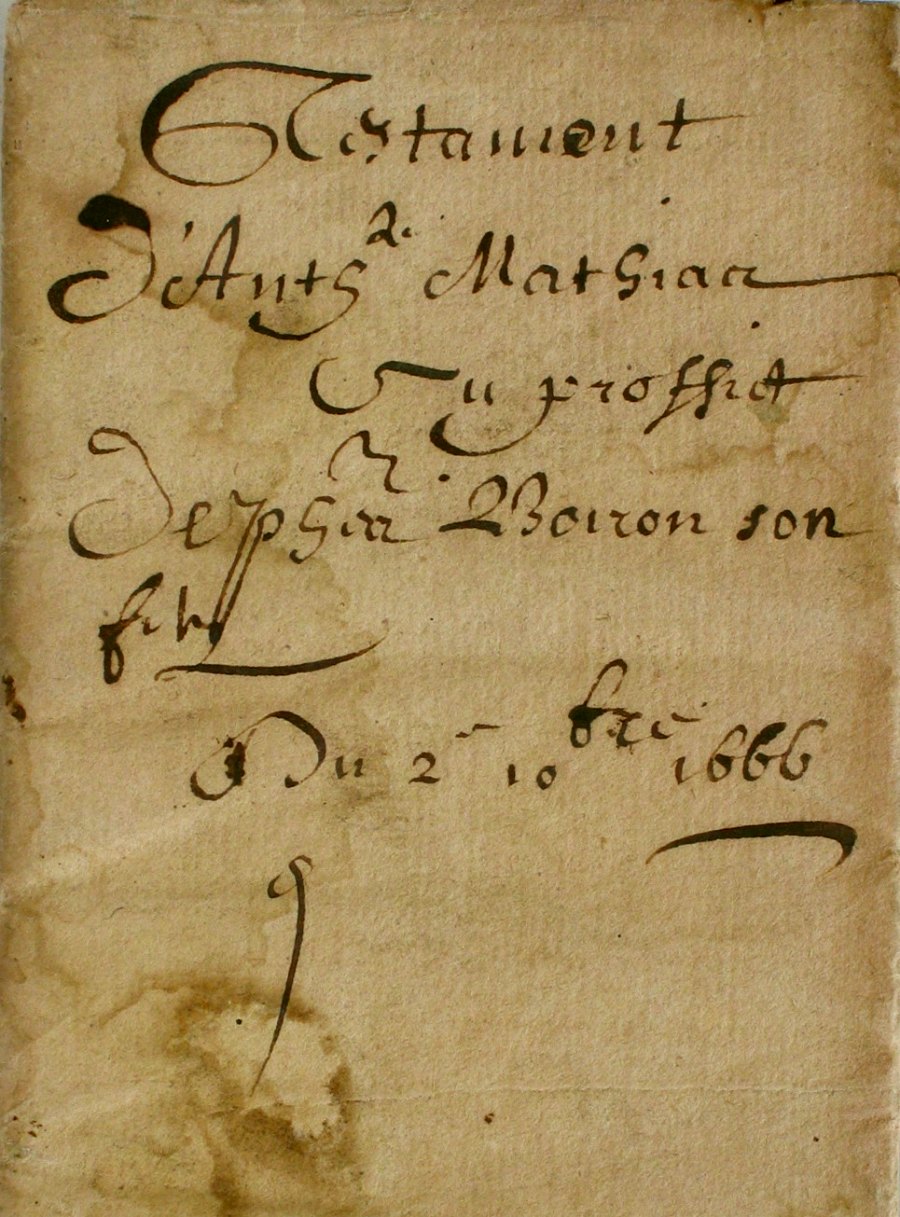 Testament
d'Anth.de Mathiaa
Au proffict
de phar Boiron son
filz
Du 2e 10bre 1666
9